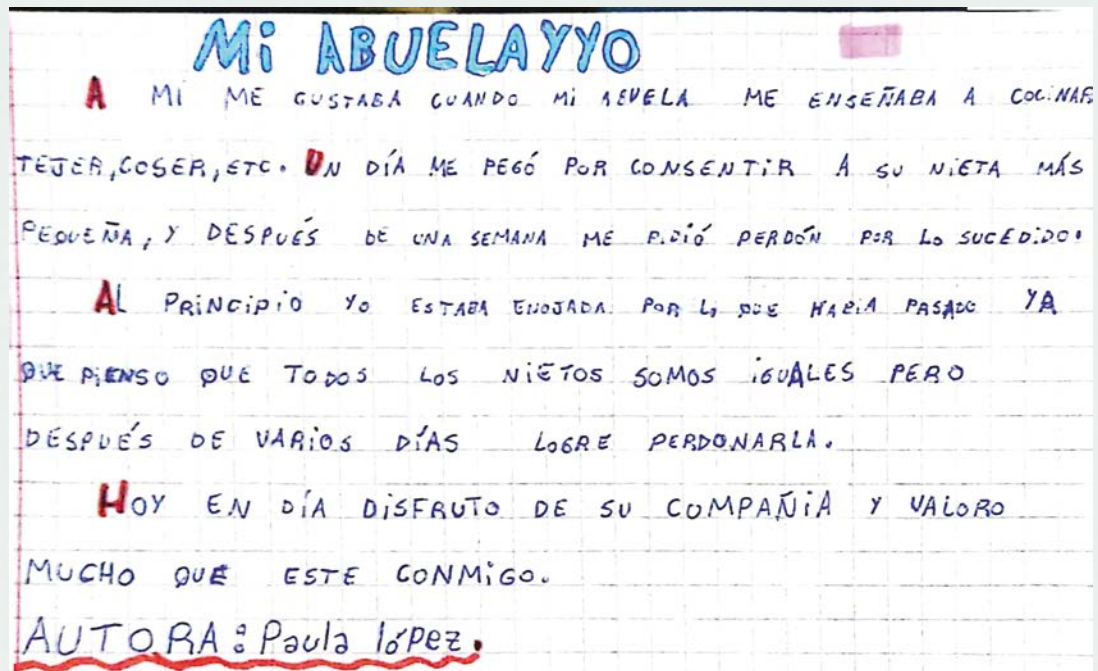 Mi ABUELA Y YO
A MI ME GUSTABA CUANDO Mi ABUELA ME ENSEÑABA A COCiNAR
TEJER, COSER, ETC. UN DÍA ME PEGÓ POR CONSENTiR A SU NiETA MÁS
PEQUEÑA, Y DESPUÉS DE UNA SEMANA ME PiDiÓ PERDÓN POR LO SUCEDiDO.
AL PRiNCiPiO YO ESTABA ENOJADA POR LO QUE HABiA PASADO YA
QUE PiENSO QUE TODOS LOS NiETOS SOMOS iGUALES PERO
DESPUÉS DE VARiOS DÍAS LOGRE PERDONARLA.
HOY EN DÍA DiSFRUTO DE SU COMPAÑiA Y VALORO
MUCHO QUE ESTE CONMiGO.
AUTORA: Paula lópez.